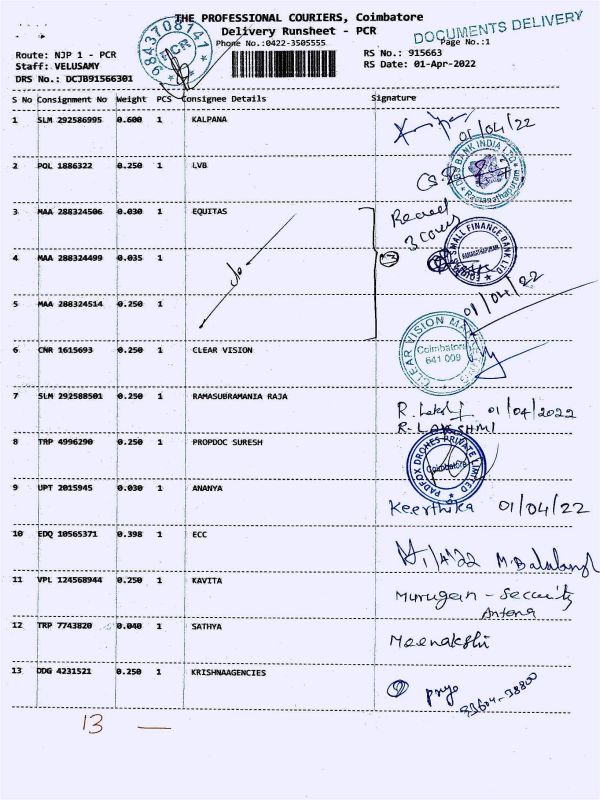 THE PROFESSIONAL COURIERS, Coimbatore
Delivery Runsheet - PCR
DOCUMENTS DELIVERY
Phone No.:0422-3505555
Page No.:1
9843708141
PCR
Route: NJP 1 - PCR
RS No.: 915663
Staff: VELUSAMY
RS Date: 01-Apr-2022
DRS No.: DCJB91566301
S No Consignment No Weight PCS Consignee Details Signature
1 SLM 292586995 0.600 1 KALPANA
01/04/22
2 POL 1886322 0.250 1 LVB
DBS BANK INDIA LTD
Ramanathapuram
3 MAA 288324506 0.030 1 EQUITAS
3 covers
4 MAA 288324499 0.035 1
SMALL FINANCE BANK LTD
RAMANATHAPURAM
5 MAA 288324514 0.250 1
01/04/22
6 CNR 1615693 0.250 1 CLEAR VISION
CLEAR VISION
Coimbatore
641 009
7 SLM 292588501 0.250 1 RAMASUBRAMANIA RAJA
R. Lakshmi 01/04/2022
R. LAKSHMI
8 TRP 4996290 0.250 1 PROPDOC SURESH
PADFOX DRONES PRIVATE LIMITED
Coimbatore
9 UPT 2015945 0.030 1 ANANYA
Keerthika 01/04/22
10 EDQ 10565371 0.398 1 ECC
1/4/22
11 VPL 124568944 0.250 1 KAVITA
Murugan - Security
12 TRP 7743820 0.040 1 SATHYA
Meenakshi
13 DDG 4231521 0.250 1 KRISHNAAGENCIES
13 —